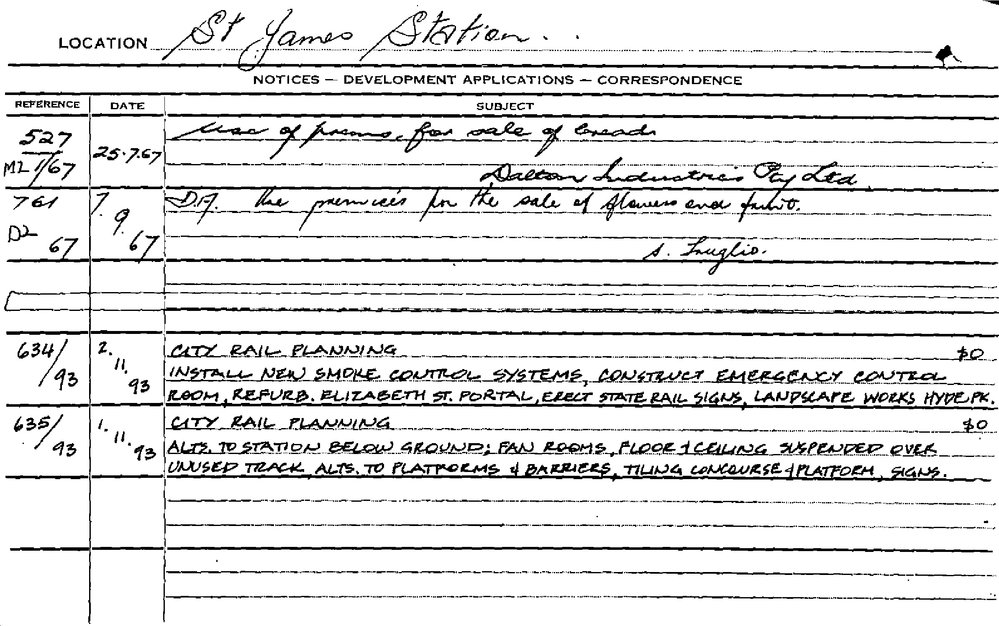 LOCATION St James Station.
NOTICES — DEVELOPMENT APPLICATIONS — CORRESPONDENCE
REFERENCE DATE SUBJECT
527 25.7.67 Use of prems. for sale of bread
M2 1/67 Dalton Industries Pty Ltd.
761 7.9.67 D.A. Use premises for the sale of flowers and fruit.
D2 67 S.
634/93 2.11.93 CITY RAIL PLANNING $0
INSTALL NEW SMOKE CONTROL SYSTEMS, CONSTRUCT EMERGENCY CONTROL
ROOM, REFURB. ELIZABETH ST. PORTAL, ERECT STATE RAIL SIGNS, LANDSCAPE WORKS HYDE PK.
635/93 1.11.93 CITY RAIL PLANNING $0
ALTS. TO STATION BELOW GROUND; FAN ROOMS, FLOOR & CEILING SUSPENDED OVER
UNUSED TRACK, ALTS. TO PLATFORMS & BARRIERS, TILING CONCOURSE & PLATFORM, SIGNS.